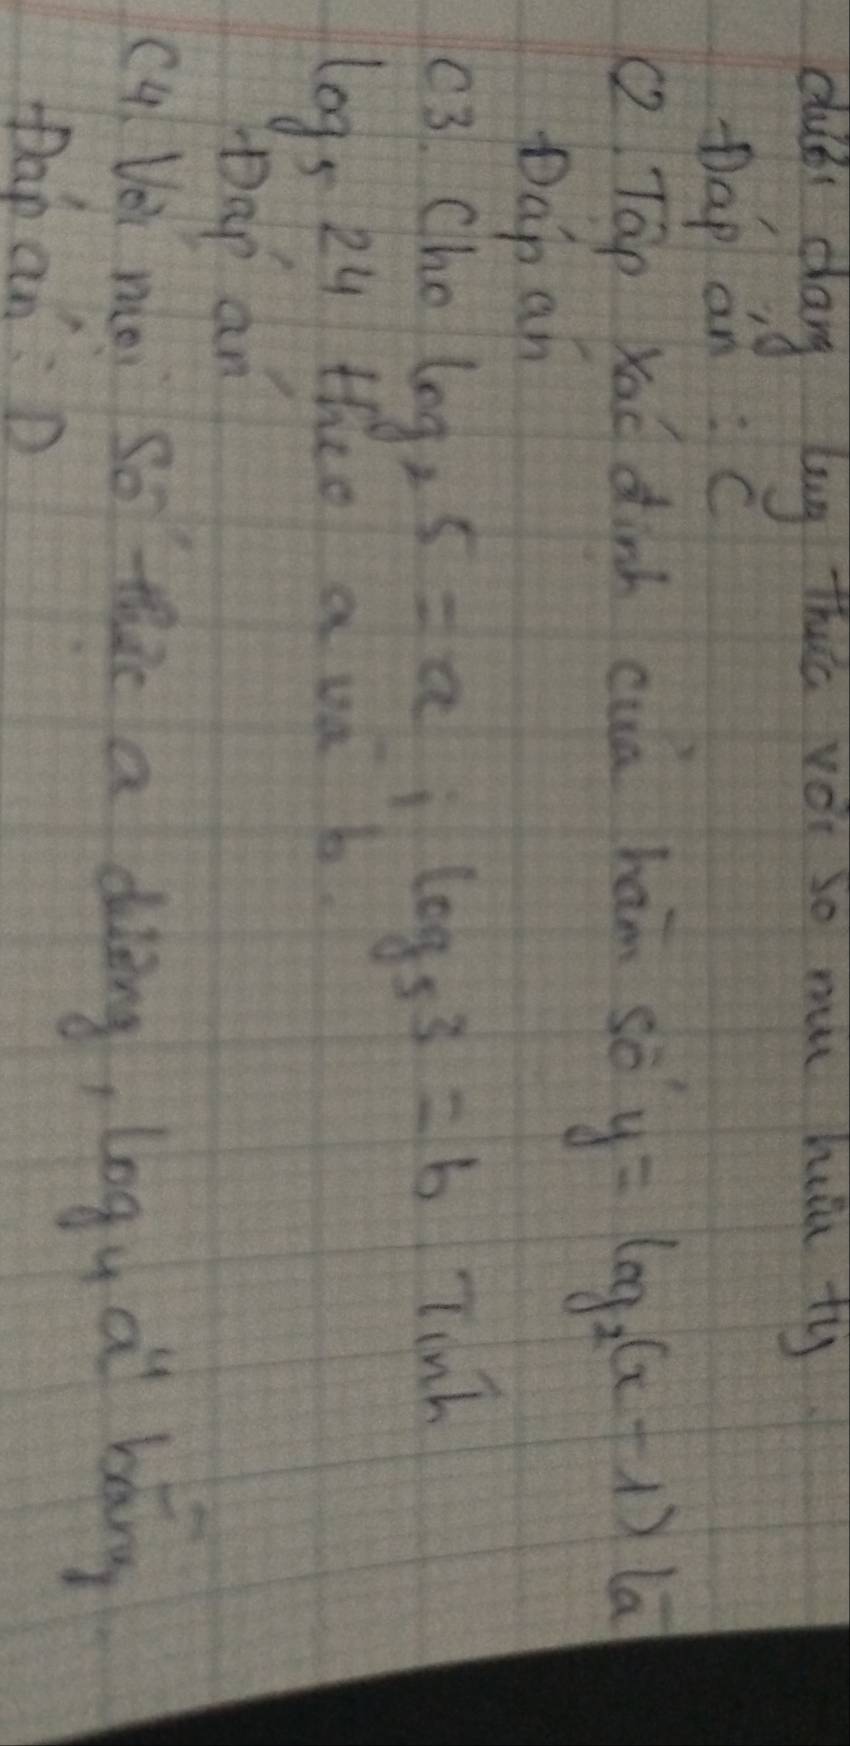 dưới dạng luỹ thừa với số mũ hữu tỷ.
Đáp án : C
C2. Tập xác định của hàm số y = log₂(x - 1) là
Đáp án
C3. Cho log₂5 = a ; log₅3 = b Tính
log₅ 24 theo a và b.
Đáp án
C4. Với mọi số thức a dương, log₄a⁴ bằng.
Đáp án : D